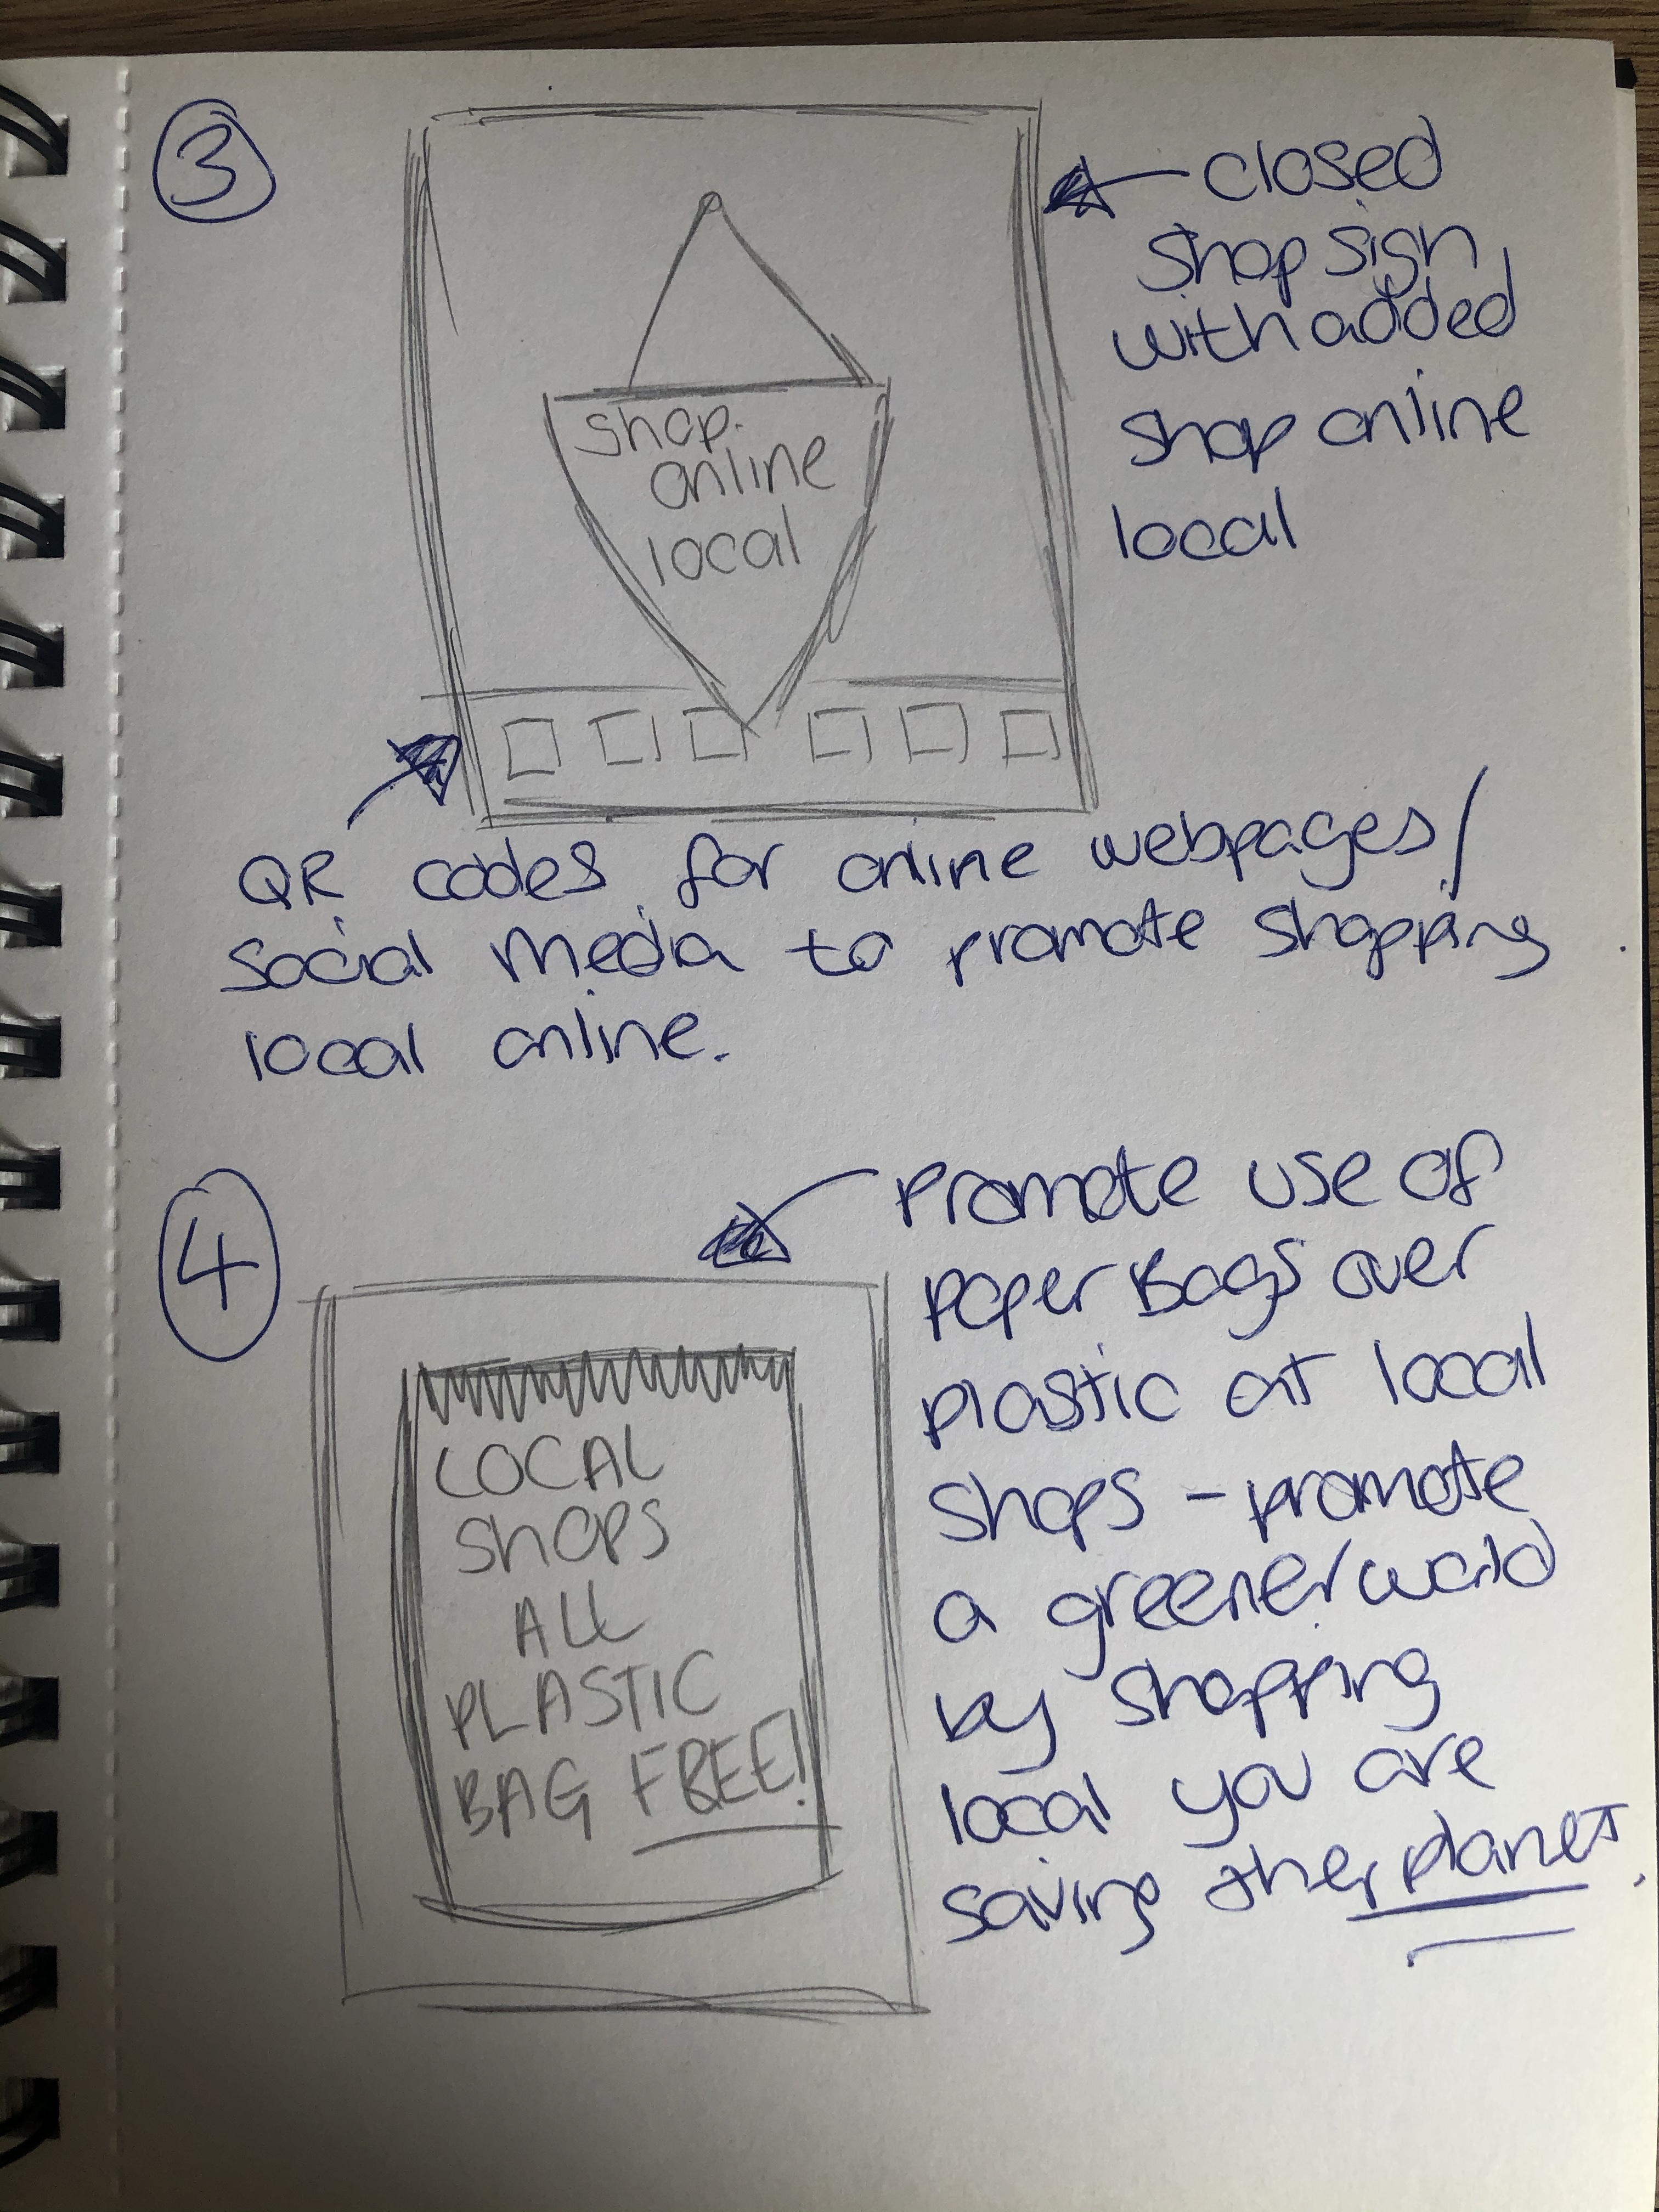 3
closed
shop sign
with added
shop online
local
shop
online
local
QR codes for online webpages/
social media to promote shopping
local online.
4
Promote use of
paper Bags over
plastic at local
shops - promote
a greener world
by shopping
local you are
saving the planet.
LOCAL
SHOPS
ALL
PLASTIC
BAG FREE!